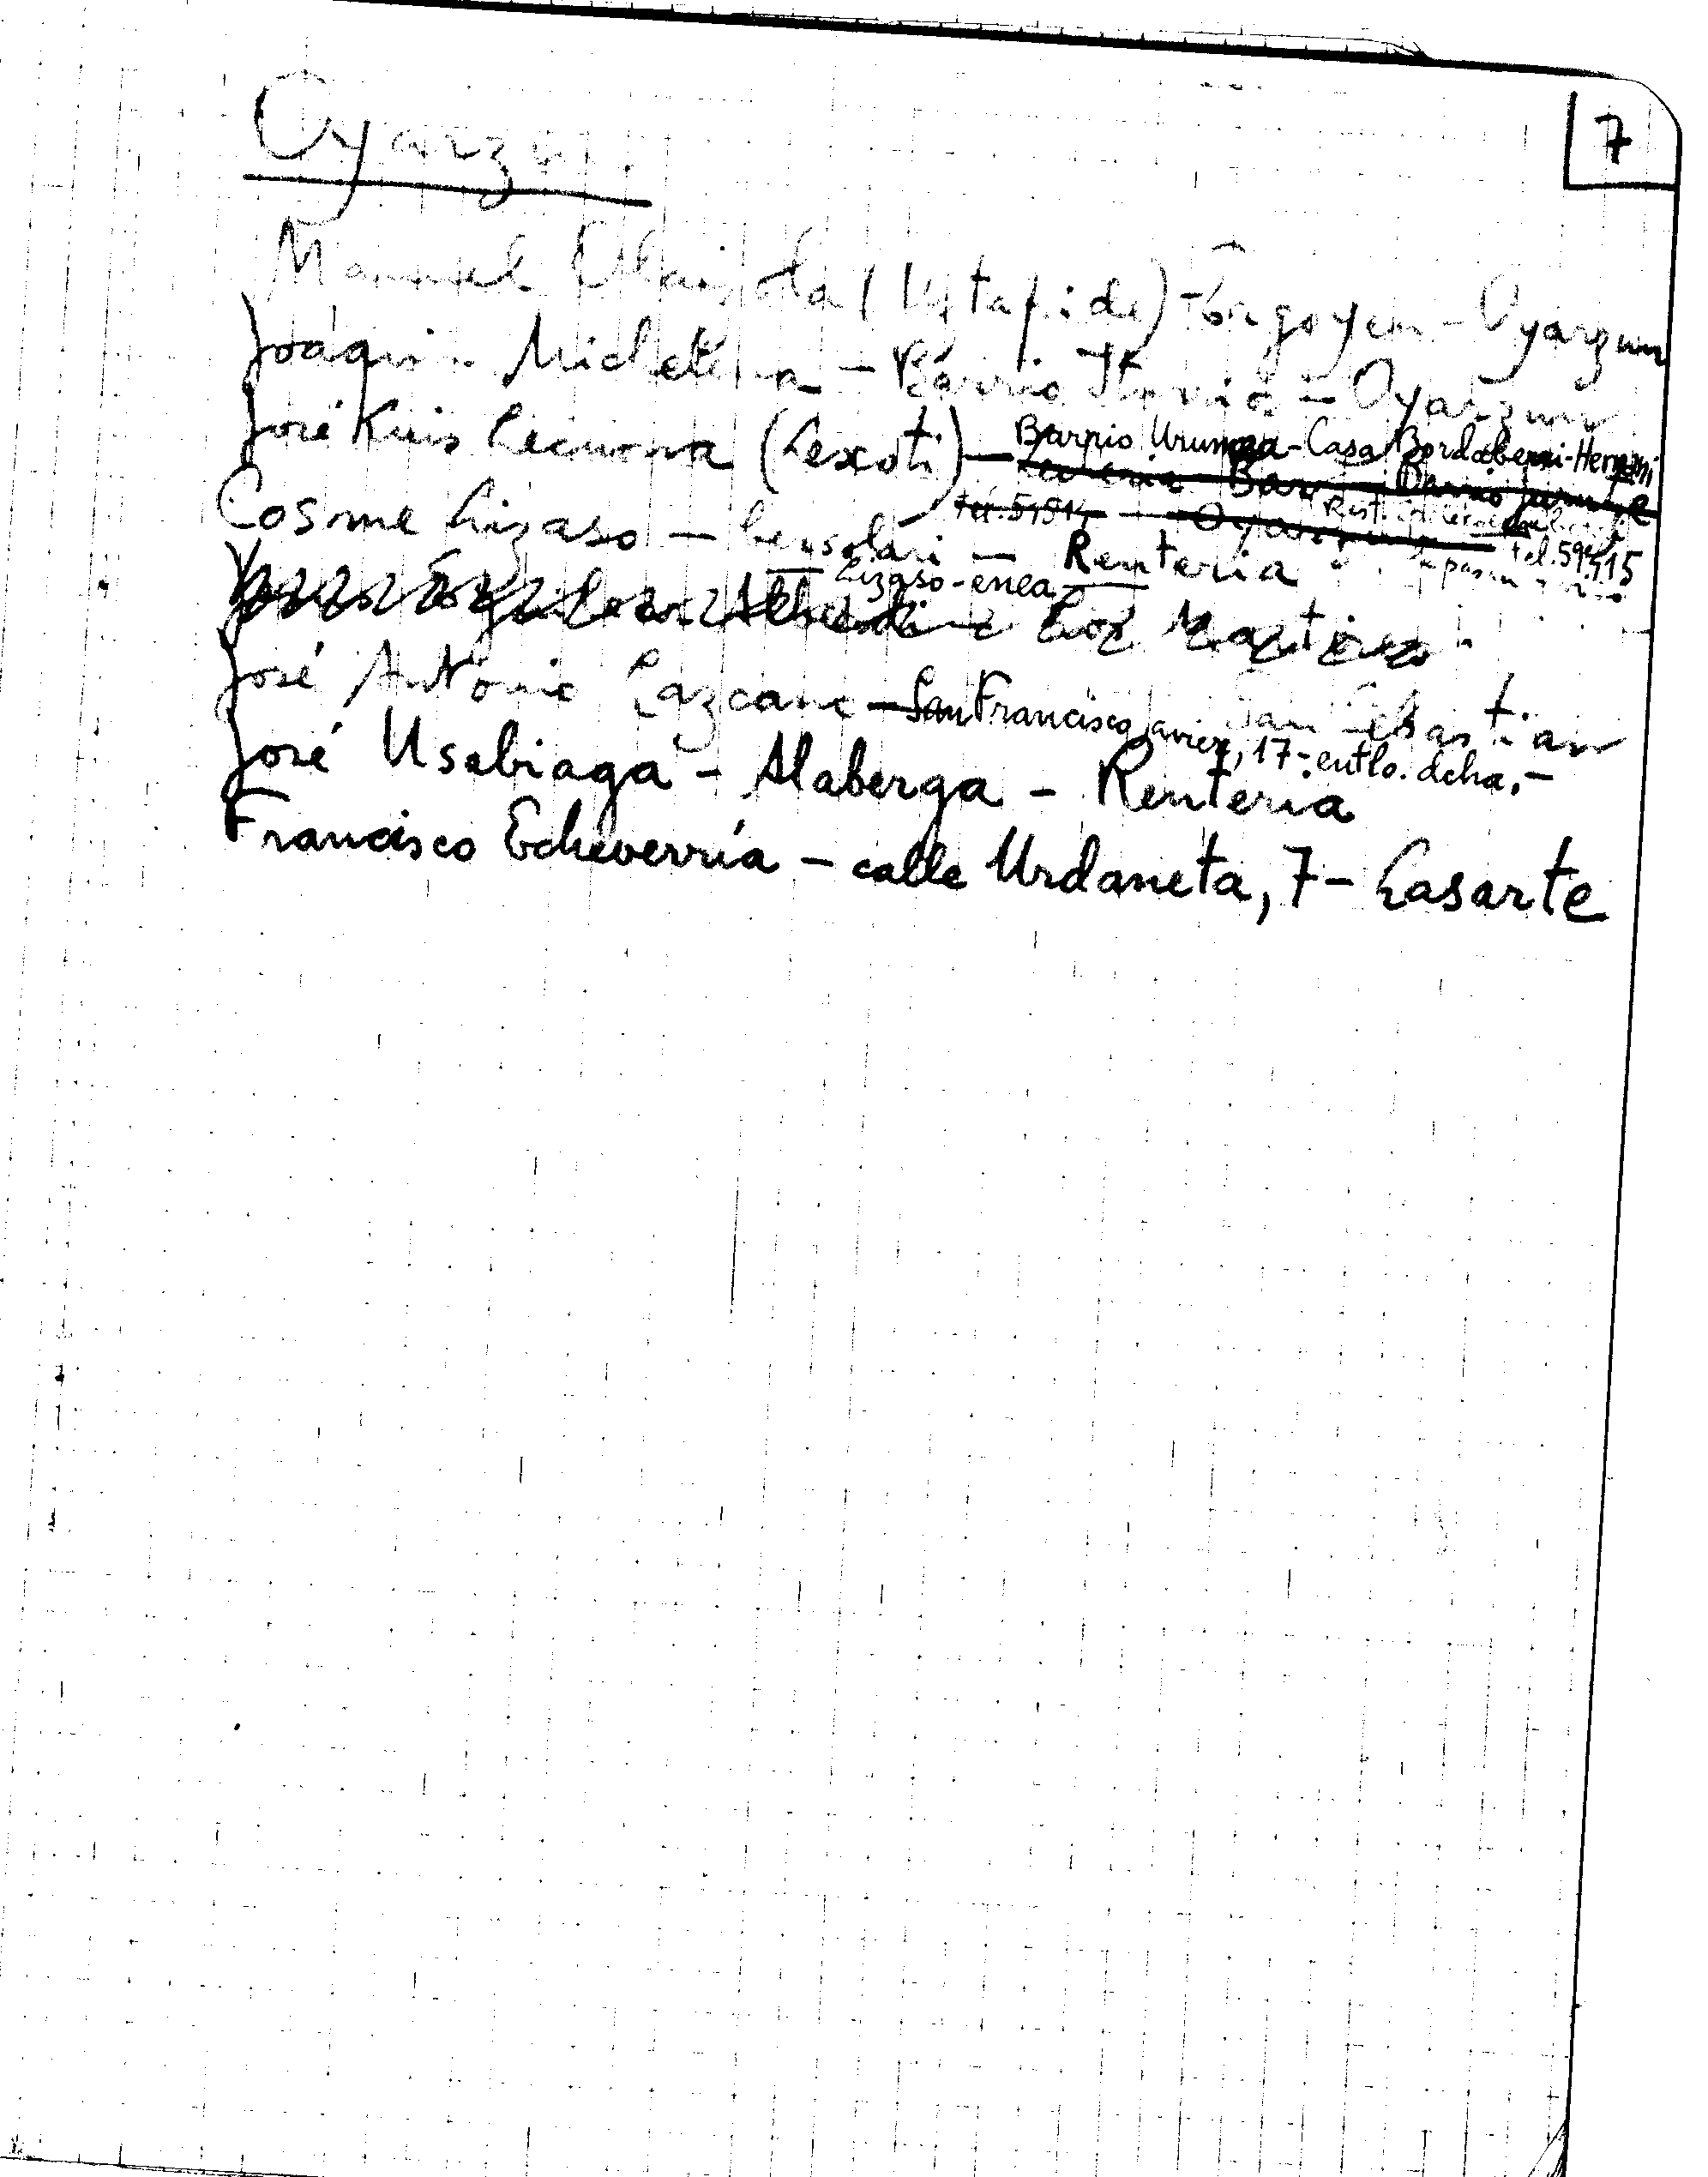 7
Oyarzun
Manuel Olaizola (Uztapide) - Ergoyen - Oyarzun
Joaquin Michelena - Barrio Iturrioz - Oyarzun
José Luis Lecuona (Lexoti) - Barrio Urumea - Casa Bordaberri - Hernani
Bar - Barrio
tel. 51514 - Oyarzun tel. 591515
Cosme Lizaso - bersolari - Renteria
Lizaso-enea
Los Martires
José Antonio Lazcano - San Francisco Javier, 17 - entlo. dcha. - San Sebastian
José Usabiaga - Alaberga - Renteria
Francisco Echeverría - calle Urdaneta, 7 - Lasarte